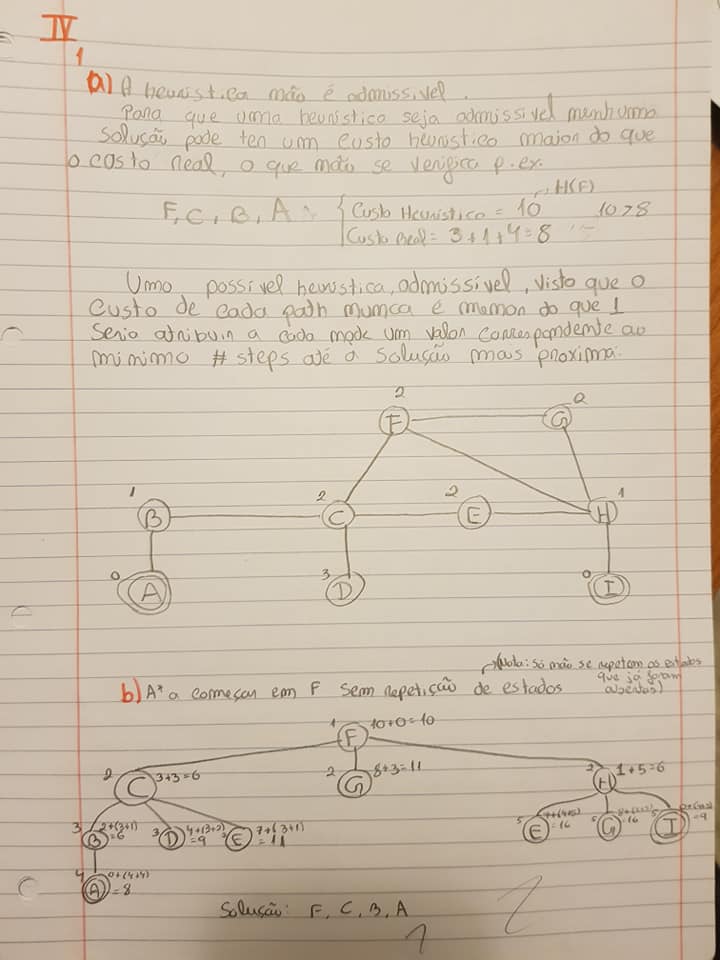 IV
1
a) A heurística não é admissível.
Para que uma heurística seja admissível nenhuma
solução pode ter um custo heurístico maior do que
o custo real, o que não se verifica p.ex.
H(F)
F, C, B, A : { Custo Heurístico = 10 10 > 8
Custo Real = 3+1+4=8
Uma possível heurística, admissível, visto que o
custo de cada path nunca é menor do que 1
seria atribuir a cada node um valor correspondente ao
mínimo # steps até à solução mais próxima.
2 2
F G
1 2 2 1
B C E H
0 3 0
A D I
(Nota: só não se repetem os estados
que já foram
abertos)
b) A* a começar em F sem repetição de estados
1 F 10+0=10
2 C 3+3=6 2 G 8+3=11 2 H 1+5=6
3 B 2+(3+1)=6 3 D 4+(3+2)=9 E 7+(3+1)=11 5 E =16 5 G =16 5 I =9
4 A 0+(4+4)=8
Solução: F, C, B, A